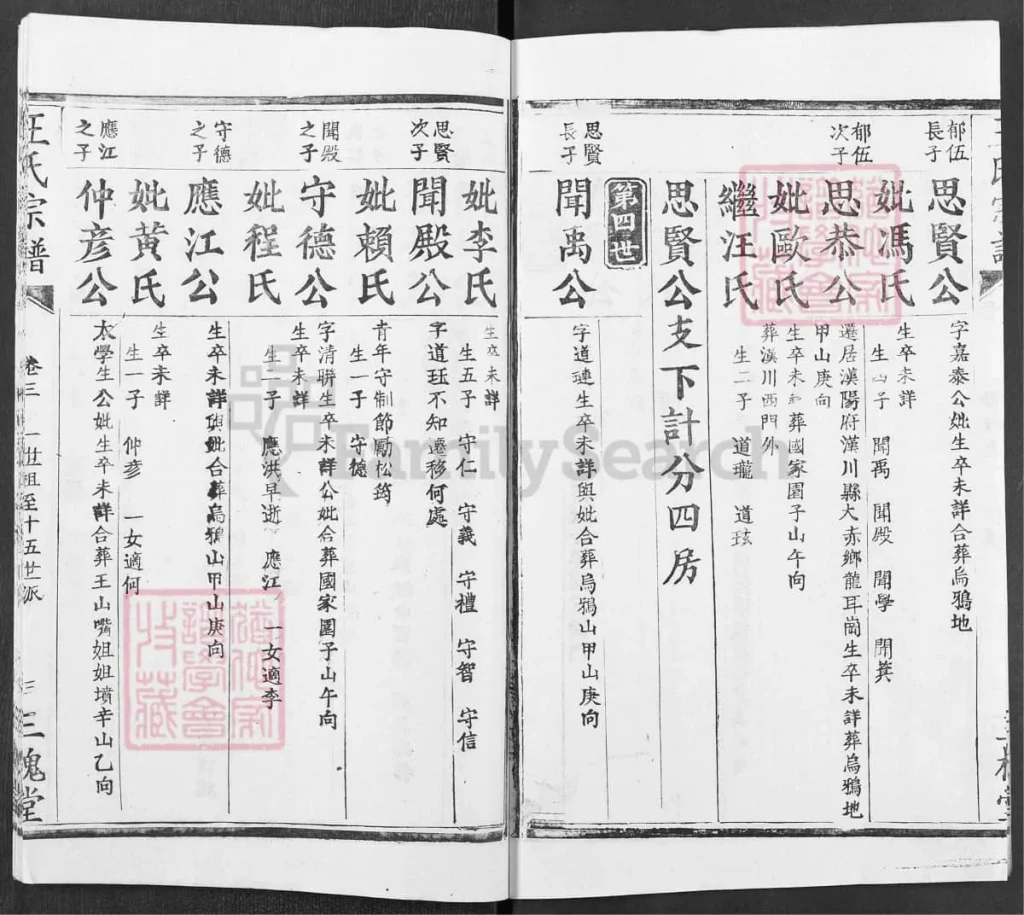 郁伍長子
思賢公
字嘉泰公妣生卒未詳合葬烏鴉地
妣馮氏
生卒未詳
生四子 聞禹 聞殿 聞學 聞冀
郁伍次子
思恭公
遷居漢陽府漢川縣大赤鄉龍耳崗生卒未詳葬烏鴉地
甲山庚向
妣歐氏
生卒未詳葬國家園子山午向
葬漢川西門外
繼汪氏
生二子 道瓏 道玹
思賢公支下計分四房
第四世
思賢長子
聞禹公
字道璉生卒未詳與妣合葬烏鴉山甲山庚向
妣李氏
生卒未詳
生五子 守仁 守義 守禮 守智 守信
思賢次子
聞殿公
字道珏不知遷移何處
妣賴氏
青年守制節勵松筠
生一子 守德
聞殿之子
守德公
字清聯生卒未詳公妣合葬國家園子山午向
妣程氏
生卒未詳
生一子 應洪早逝 應江 一女適李
守德之子
應江公
生卒未詳與妣合葬烏鴉山甲山庚向
妣黃氏
生卒未詳
生一子 仲彥 一女適何
應江之子
仲彥公
太學生公妣生卒未詳合葬王山嘴姐姐墳辛山乙向
王氏宗譜
卷三 一世祖至十五世派
三
三槐堂
FamilySearch